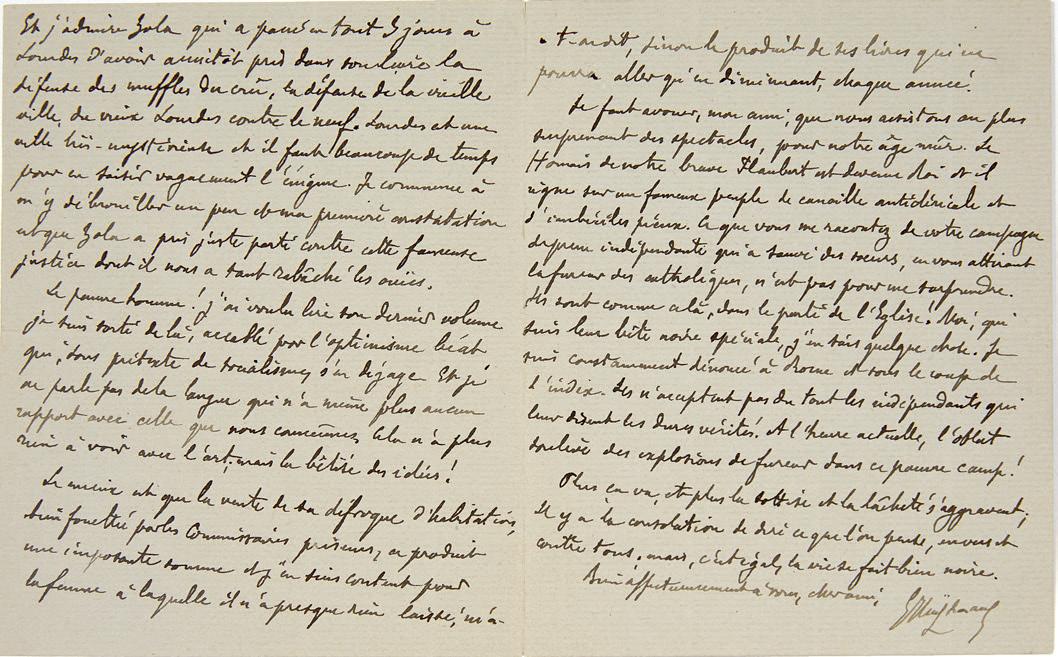 Et j'admire Zola qui a passé en tout 3 jours à
Lourdes d'avoir aussitôt pris dans son livre la
défense des muffles du crû, la défense de la vieille
ville, du vieux Lourdes contre le neuf. Lourdes est une
ville très-mystérieuse et il faut beaucoup de temps
pour en saisir vaguement l'énigme. Je commence à
m'y débrouiller un peu et ma première constatation
est que Zola a pris juste parti contre cette fameuse
justice dont il nous a tant rabâché les ouïes.
Le pauvre homme ! j'ai voulu lire son dernier volume
je suis sorti de là, accablé par l'optimisme béat
qui, sous prétexte de socialismes s'en dégage. Et je
ne parle pas de la langue qui n'a même plus aucun
rapport avec celle que nous connûmes, Cela n'a plus
rien à voir avec l'art, mais la bêtise des idées !
Le mieux est que la vente de sa défroque d'habitation,
bien fouettée par les Commissaires priseurs, a produit
une imposante somme et j'en suis content pour
la femme à laquelle il n'a presque rien laissé, m'a-
t-on dit, sinon le produit de ses livres qui ne
pourra aller qu'en diminuant, chaque année.
Il faut avouer, mon ami, que nous assistons au plus
surprenant des spectacles, pour notre âge mûr. Le
Homais de notre brave Flaubert est devenu Roi et il
règne sur un fameux peuple de canaille anticléricale et
d'imbéciles pieux. Ce que vous me racontez de votre campagne
de presse indépendante qui a sauvé des sœurs, en vous attirant
la fureur des catholiques, n'est pas pour me surprendre.
Ils sont comme cela, dans le parti de l'Eglise ! Moi, qui
suis leur bête noire spéciale, j'en sais quelque chose. Je
suis constamment dénoncé à Rome et sous le coup de
l'index. Ils n'acceptent pas du tout les indépendants qui
leur disent les dures vérités. A l'heure actuelle, l'oblat
soulève des explosions de fureur dans ce pauvre camp !
Plus ça va, et plus la sottise et la lâcheté s'aggravent ;
Il y a la consolation de dire ce que l'on pense, envers et
contre tous ; mais, c'est égal, la vie se fait bien noire.
Bien affectueusement à vous, cher ami,
GHuysmans